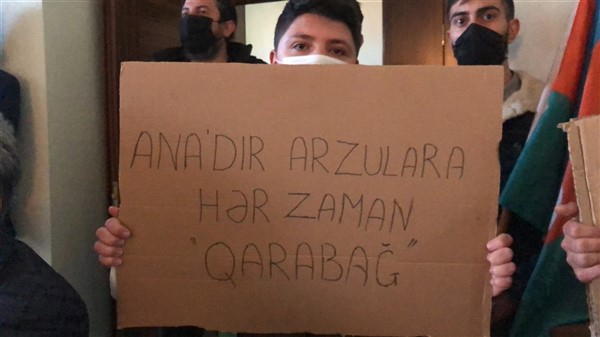 ANA'DIR ARZULARA
HƏR ZAMAN
"QARABAĞ"